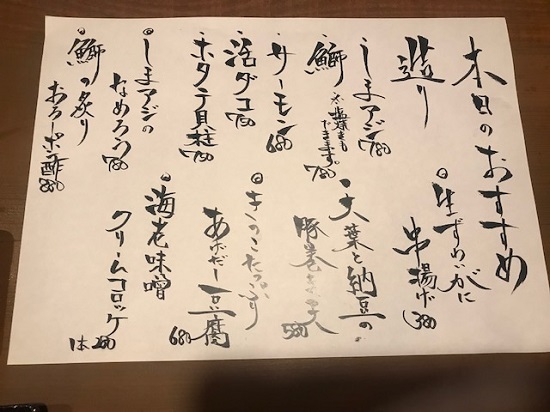 本日のおすすめ
造り
・しまアジ 780
・鰤 780
※塩焼きも
できます。
・サーモン 680
・活ダコ 780
・ホタテ貝柱 780
◎しまアジの
なめろう 780
◎鰤の炙り
おろしポン酢 880
◎生ずわいがに
串揚げ 380
・大葉と納豆の
豚巻き天 580
◎きのこたっぷり
あげだし豆腐 680
◎海老味噌
クリームコロッケ
1ヶ 280